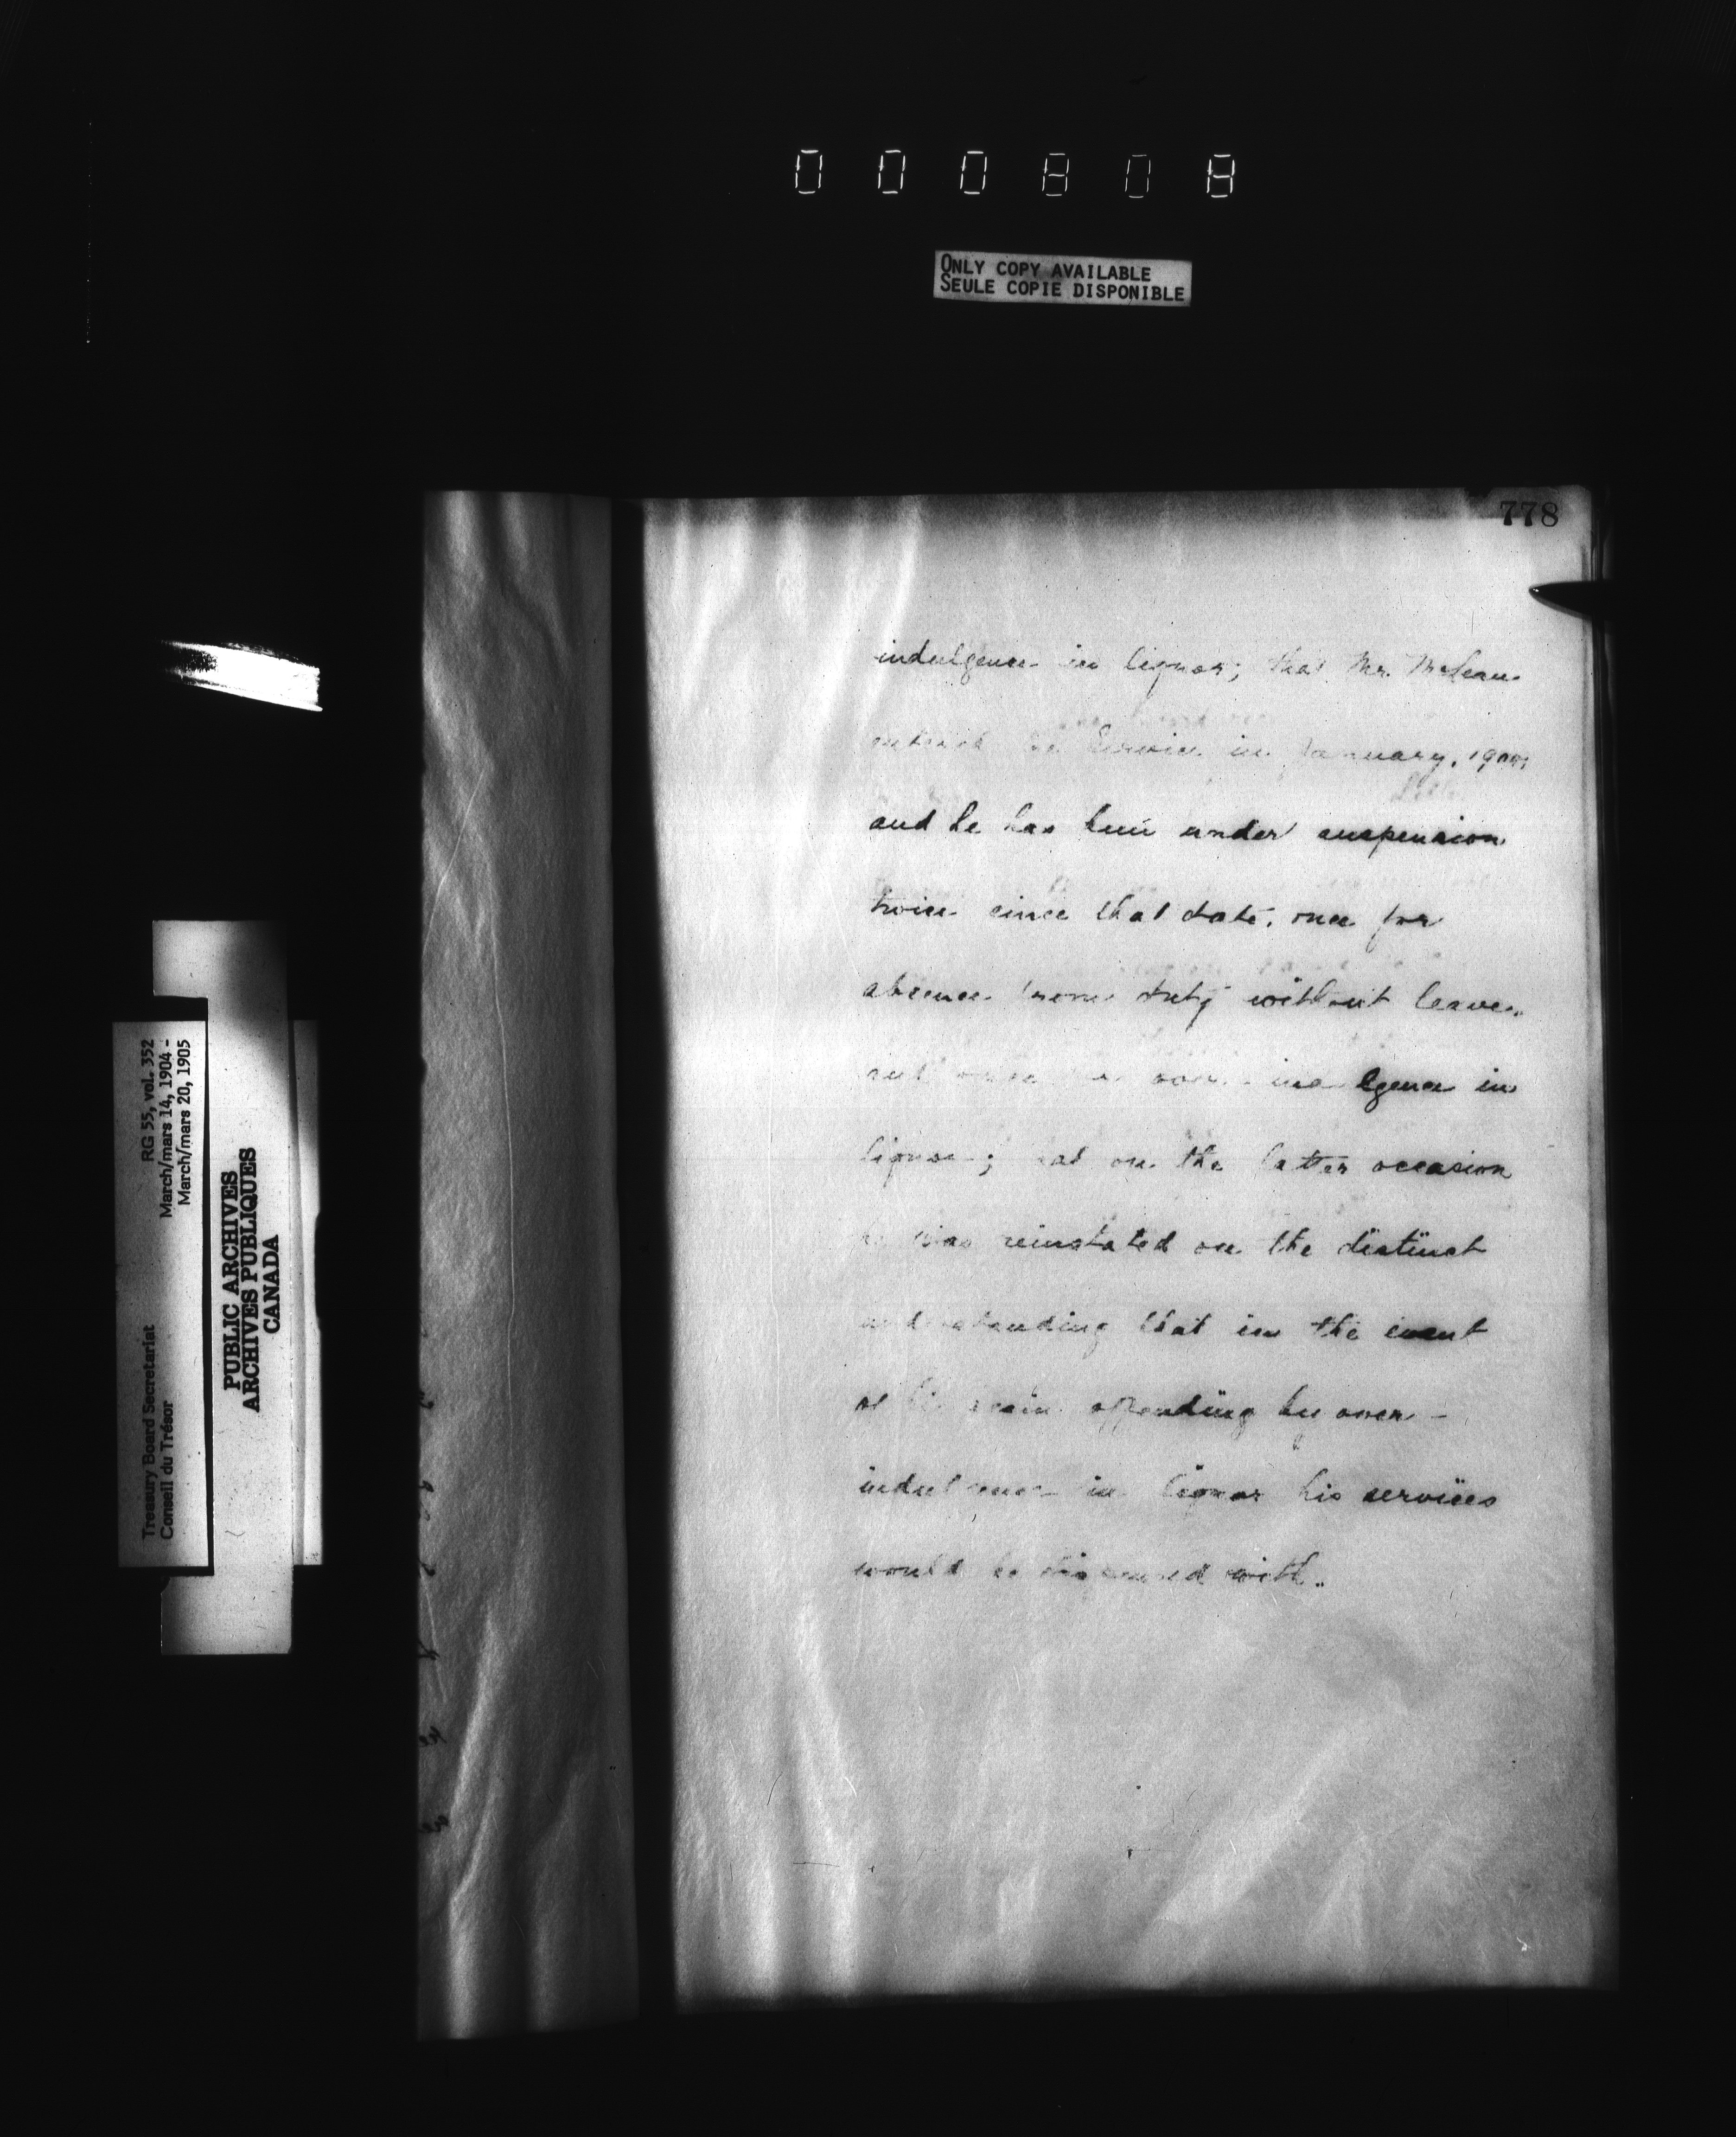 000808
ONLY COPY AVAILABLE
SEULE COPIE DISPONIBLE
778
indulgence in liquor; that Mr. McLean
entered the Service in January, 1900,
and he has been under suspension
twice since that date, once for
absence from duty without leave,
and once for over-indulgence in
liquor; that on the latter occasion
he was reinstated on the distinct
understanding that in the event
of his again offending by over-
indulgence in liquor his services
would be dispensed with.
Treasury Board Secretariat
Conseil du Trésor
RG 55, vol. 352
March/mars 14, 1904 -
March/mars 20, 1905
PUBLIC ARCHIVES
ARCHIVES PUBLIQUES
CANADA